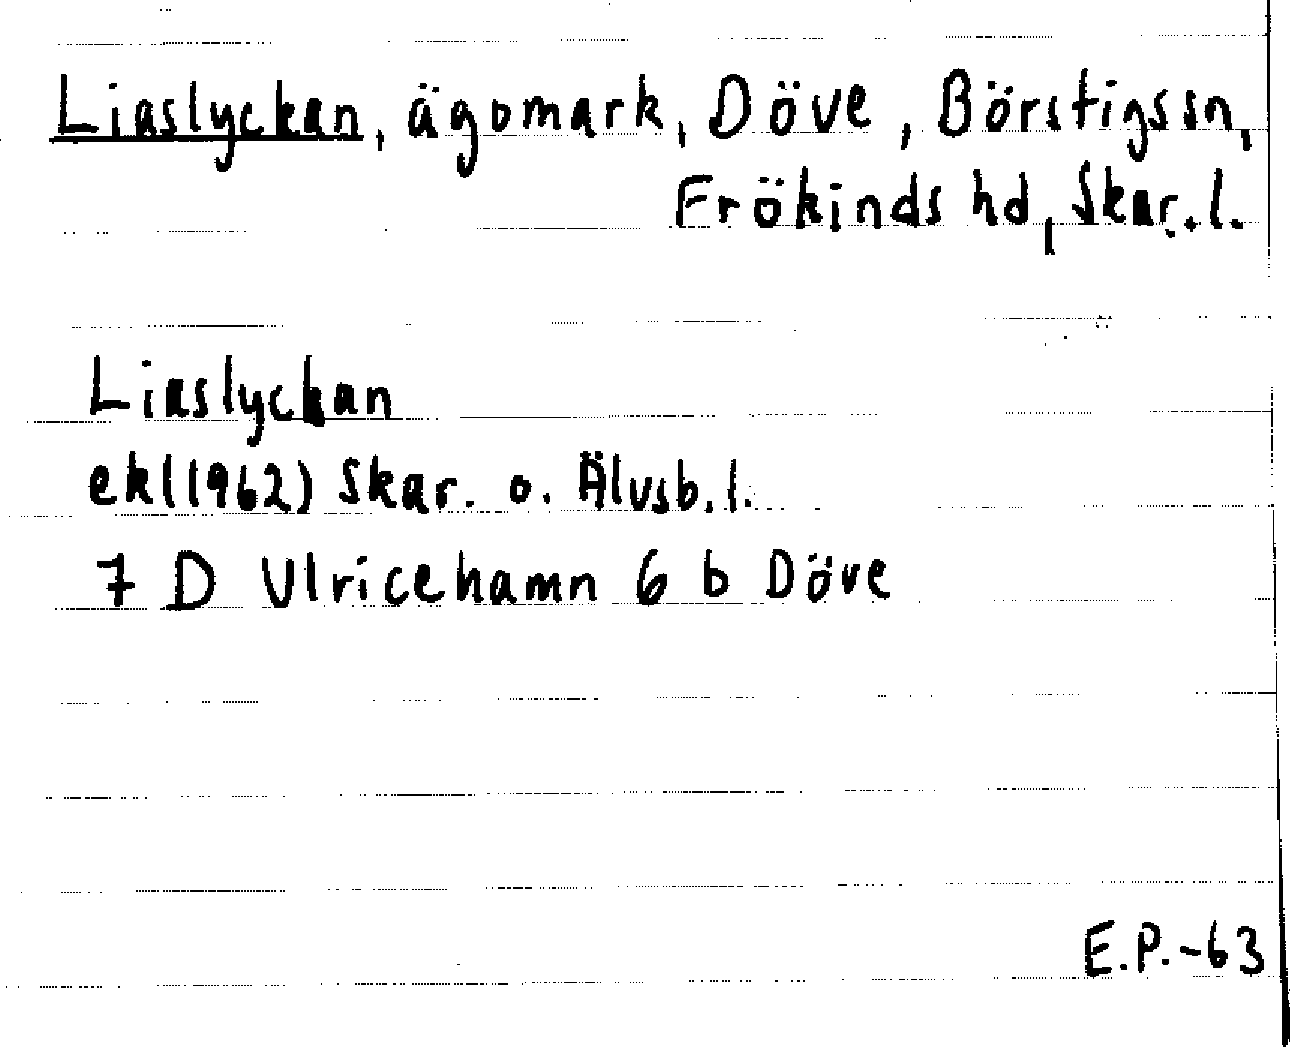 Liaslyckan, ägomark, Döve, Börstigs sn,
Frökinds hd, Skar. l.
Liaslyckan
ek (1962) Skar. o. Älvsb. l.
7 D Ulricehamn 6 b Döve
E.P.-63